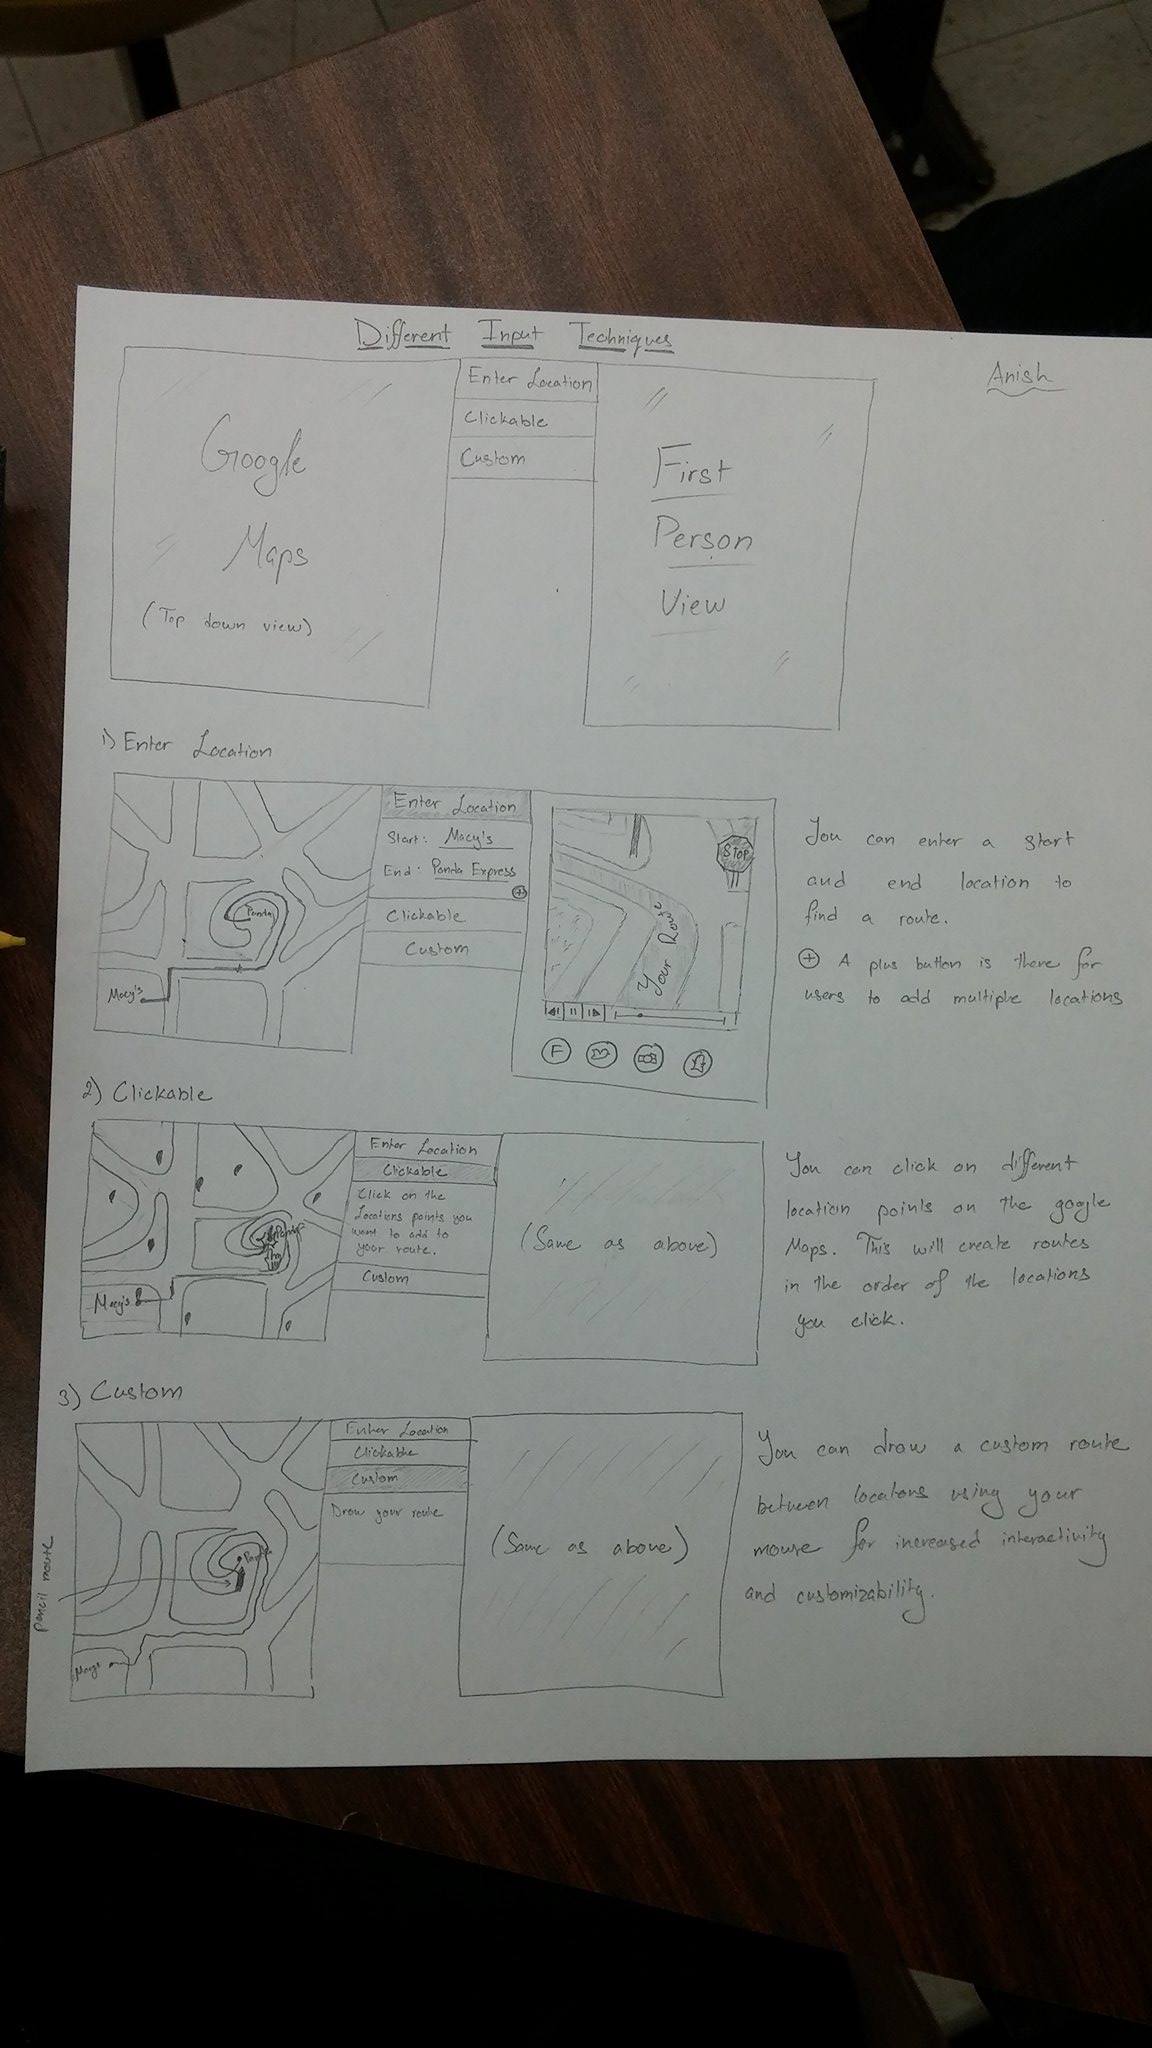 Different Input Techniques
Anish
Google
Maps
(Top down view)
Enter Location
Clickable
Custom
First
Person
View
1) Enter Location
Macy's
Panda
Enter Location
Start: Macy's
End: Panda Express
+
Clickable
Custom
STOP
Your Route
F
You can enter a start
and end location to
find a route.
+ A plus button is there for
users to add multiple locations
2) Clickable
Macy's
Panda
Enter Location
Clickable
Click on the
Locations points you
want to add to
your route.
Custom
(Same as above)
You can click on different
location points on the google
Maps. This will create routes
in the order of the locations
you click.
3) Custom
pencil mouse
Macys
Panda
Enter Location
Clickable
Custom
Draw your route
(Same as above)
You can draw a custom route
between locations using your
mouse for increased interactivity
and customizability.